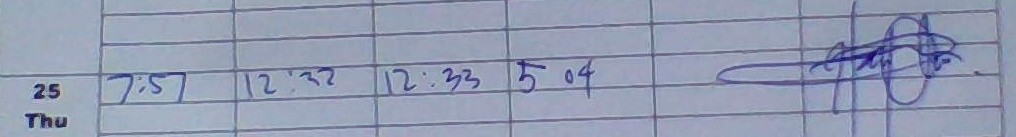 25 7:57 12:32 12:33 5 04
Thu